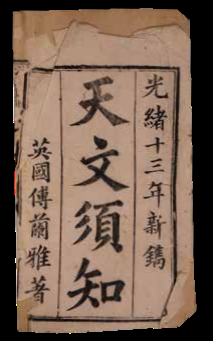 光緒十三年新鐫
天文須知
英國傅蘭雅著